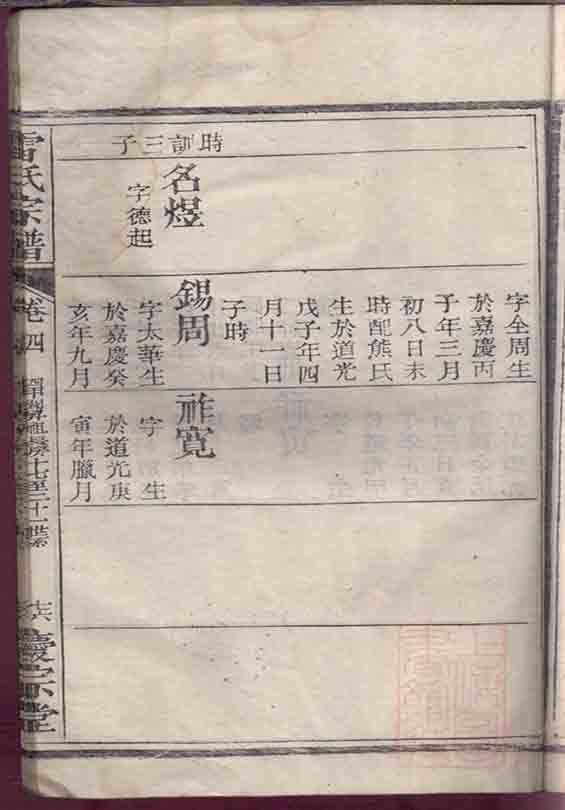 時訓三子
名煜
字德起
字全周生
於嘉慶丙
子年三月
初八日未
時配熊氏
生於道光
戊子年四
月十一日
子時
錫周
字太華生
於嘉慶癸
亥年九月
祚寬
字 生
於道光庚
寅年臘月
雷氏宗譜
卷四